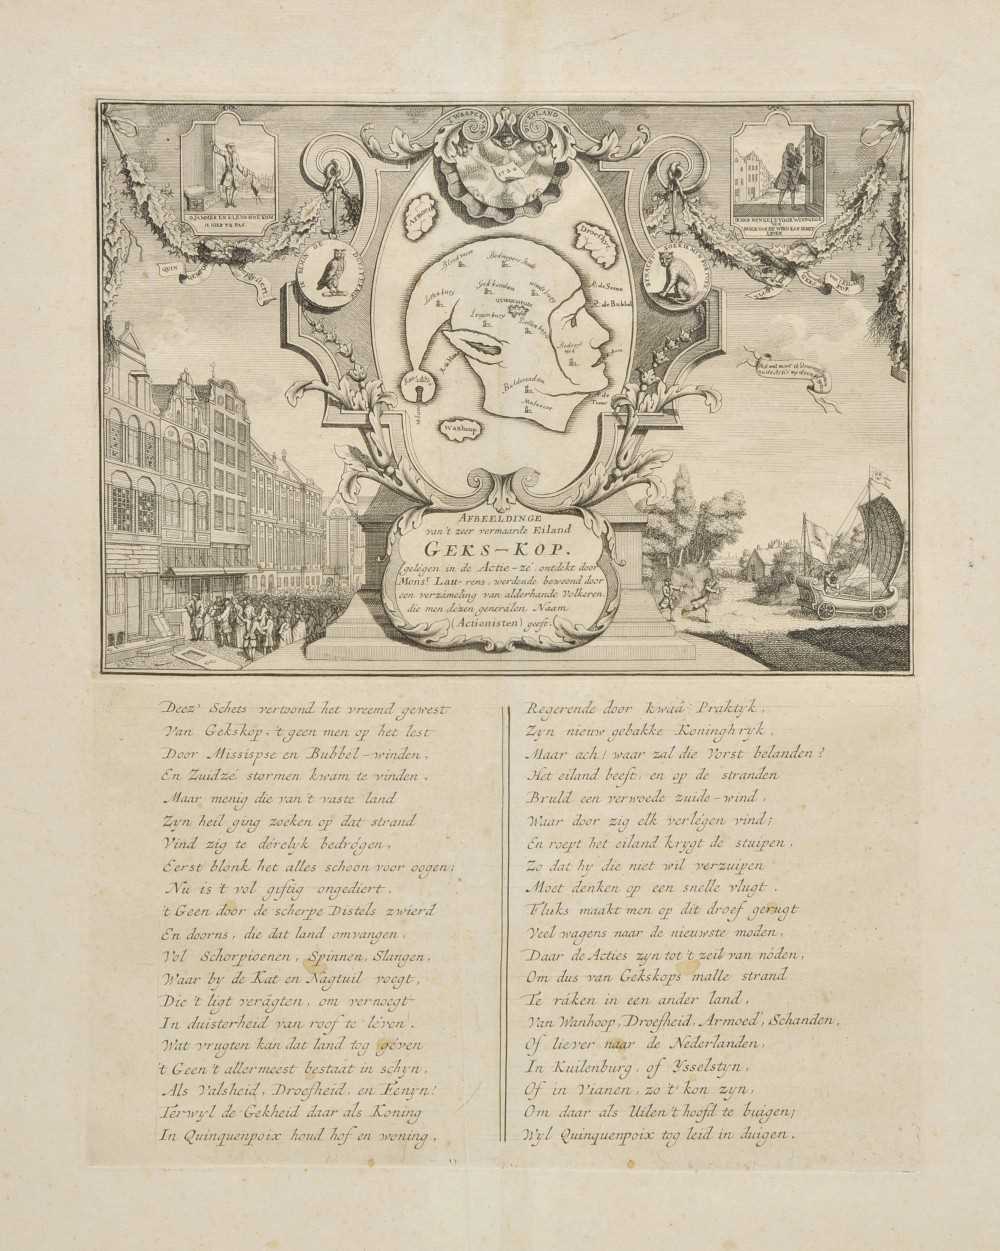 'T WAAPEN
EYLAND
1720
DJAMMER EN ELENDE HOE KOM
IK HIER TE PAS
QUIN
ARMOED
Droefheyd
Wanhoop
Bloed rivier
Lottenburg
Gekkendam
QUINQUENPOIX
Bulderendam
R: de Seine
R: de Bubbel
AFBEELDINGE
van't zeer vermaarde Eiland
GEKS-KOP.
gelegen in de Actie-zé, ontdekt door
Monsr. Lau-rens, werdende bewoond door
een verzameling van alderhande Volkeren,
die men dezen generalen Naam
(Actionisten) geeft.
Deez' Schets vertoond het vreemd gewest
Van Gekskop, 't geen men op het lest
Door Missispse en Bubbel-winden,
En Zuidzé stormen kwam te vinden.
Maar menig die van 't vaste land
Zyn heil ging zoeken op dat strand
Vind zig te dérelyk bedrógen,
Eerst blonk het alles schoon voor oogen;
Nu is 't vol giftig ongediert,
't Geen door de scherpe Distels zwierd
En doorns, die dat land omvangen,
Vol Schorpioenen, Spinnen, Slangen,
Waar by de Kat en Nagtuil voegt,
Die 't ligt verágten, om vernoegt
In duisterheid van roof te léven.
Wat vrugten kan dat land tog géven
't Geen 't allermeest bestaat in schyn,
Als Valsheid, Droefheid, en Fenyn!
Terwyl de Gekheid daar als Koning
In Quinquenpoix houd hof en woning,
Regerende door kwaâ Praktyk,
Zyn nieuw gebakke Koninghryk,
Maar ach! waar zal die Vorst belanden?
Het eiland beeft, en op de stranden
Bruld een verwoede zuide-wind,
Waar door zig elk verlégen vind;
En roept het eiland krygt de stuipen,
Zo dat hy die niet wil verzuipen
Moet denken op een snelle vlugt.
Fluks maakt men op dit droef gerugt
Veel wagens naar de nieuwste moden,
Daar de Acties zyn tot 't zeil van nóden,
Om dus van Gekskops malle strand
Te ráken in een ander land,
Van Wanhoop, Droefheid, Armoed, Schanden,
Of liever naar de Néderlanden,
In Kuilenburg, of Ysselstyn,
Of in Vianen, zo 't kon zyn,
Om daar als Uilen 't hoofd te buigen;
Wyl Quinquenpoix tog leid in duigen.